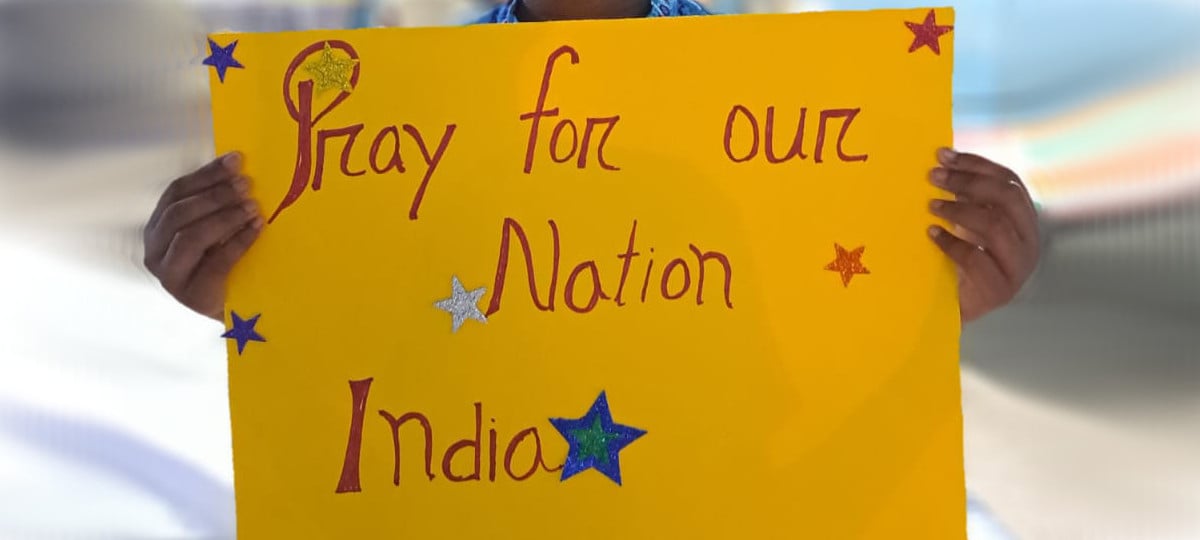 Pray for our
Nation
India